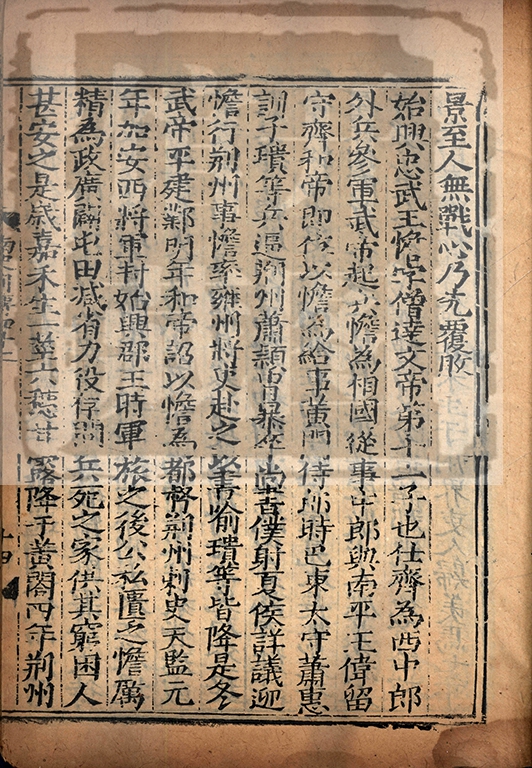 景至人無戰心乃先覆敗
始興忠武王憺字僧達文帝第十一子也仕齊為西中郎
外兵參軍武帝起兵憺為相國從事中郎與南平王偉留
守齊和帝即位以憺為給事黃門侍郎時巴東太守蕭惠
訓子璝等兵逼荊州蕭穎胄暴卒尚書僕射夏侯詳議迎
憺行荊州事憺率雍州將吏赴之以書喻璝等皆降是冬
武帝平建鄴明年和帝詔以憺為都督荊州刺史天監元
年加安西將軍封始興郡王時軍旅之後公私匱乏憺厲
精為政廣闢屯田减省力役存問兵死之家供其窮困人
甚安之是歲嘉禾生一莖六穗甘露降于黃閣四年荊州